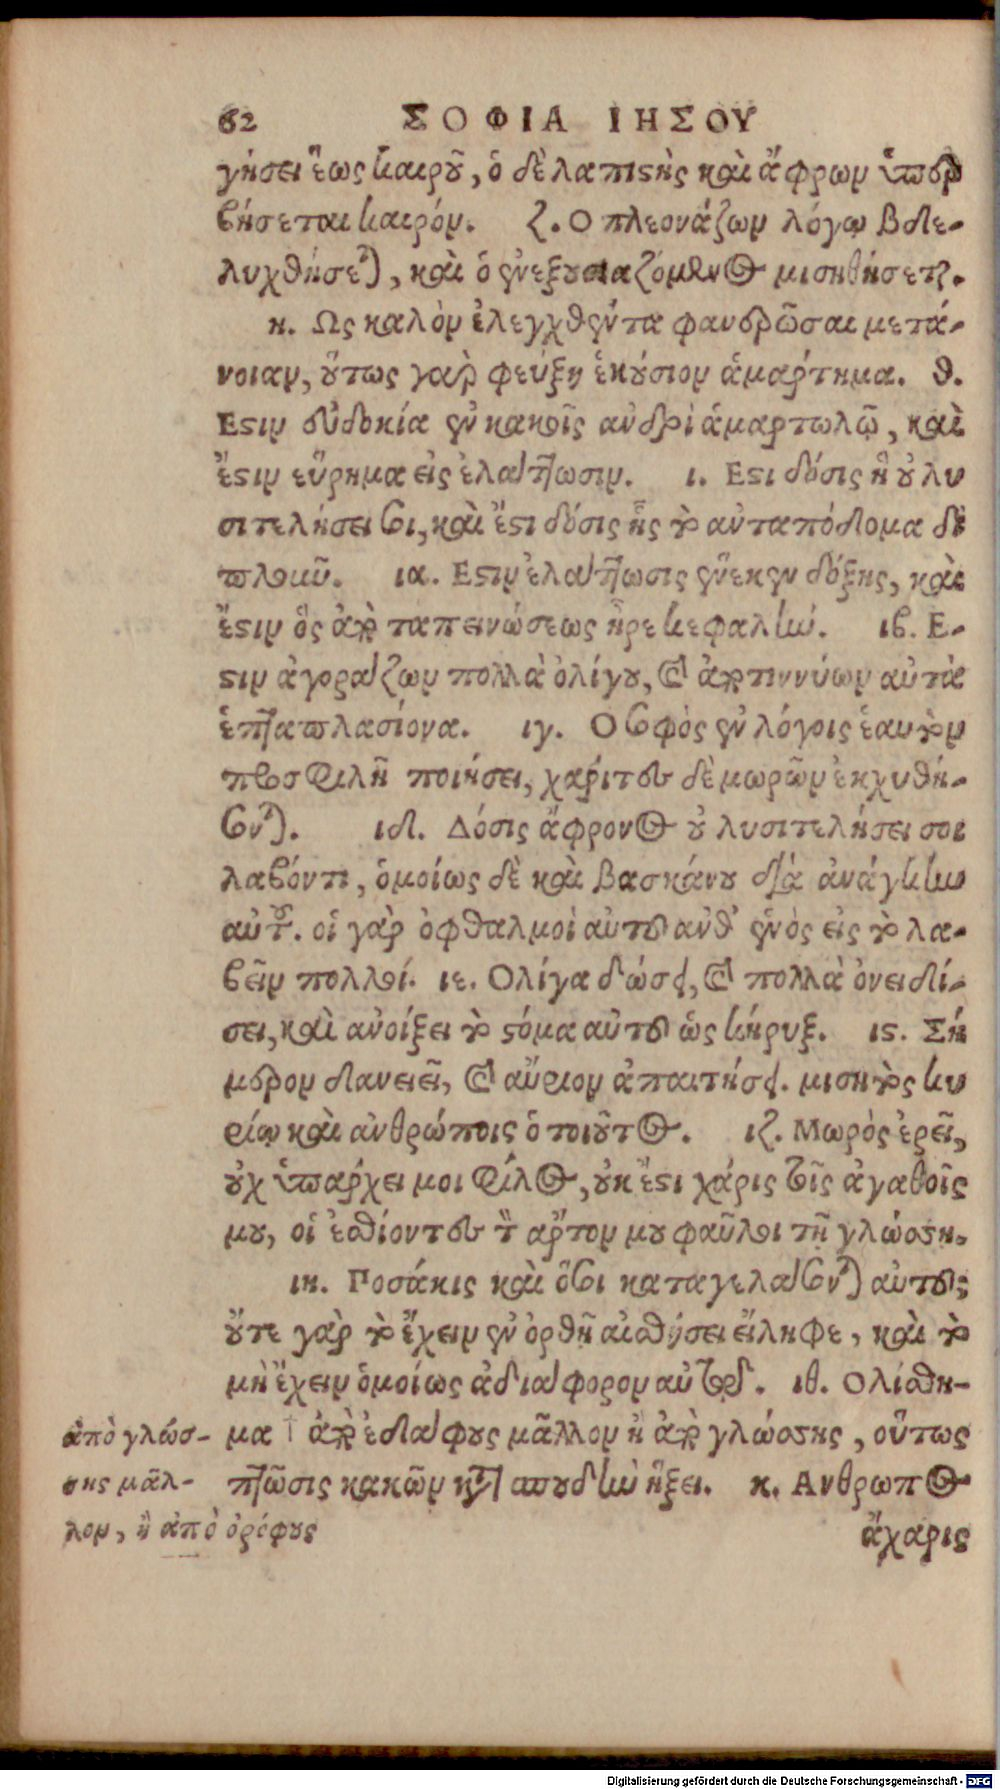 62 ΣΟΦΙΑ ΙΗΣΟΥ
γήσει ἕως καιροῦ, ὁ δὲ λαπιστὴς καὶ ἄφρων ὑπερ
βήσεται καιρόν. ζ. Ο πλεονάζων λόγῳ βδε-
λυχθήσεται, καὶ ὁ ἐνεξουσιαζόμενος μισηθήσεται.
η. Ως καλὸν ἐλεγχθέντα φανερῶσαι μετά-
νοιαν, οὕτως γὰρ φεύξῃ ἑκούσιον ἁμάρτημα. θ.
Εστιν εὐδοκία ἐν κακοῖς ἀνδρὶ ἁμαρτωλῷ, καὶ
ἔστιν εὕρημα εἰς ἐλάττωσιν. ι. Εστι δόσις ἣ οὐ λυ
σιτελήσει σοι, καὶ ἔστι δόσις ἧς τὸ ἀνταπόδομα δι
πλοῦν. ια. Εστιν ἐλάττωσις ἕνεκεν δόξης, καὶ
ἔστιν ὃς ἀπὸ ταπεινώσεως ἦρε κεφαλήν. ιβ. Ε-
στιν ἀγοράζων πολλὰ ὀλίγου, καὶ ἀποτιννύων αὐτὰ
ἑπταπλασίονα. ιγ. Ο σοφὸς ἐν λόγοις ἑαυτὸν
προσφιλῆ ποιήσει, χάριτες δὲ μωρῶν ἐκχυθή-
σονται. ιδ. Δόσις ἄφρονος οὐ λυσιτελήσει σοι
λαβόντι, ὁμοίως δὲ καὶ βασκάνου διὰ ἀνάγκην
αὐτοῦ. οἱ γὰρ ὀφθαλμοὶ αὐτοῦ ἀνθ' ἑνὸς εἰς τὸ λα-
βεῖν πολλοί. ιε. Ολίγα δώσει, καὶ πολλὰ ὀνειδί-
σει, καὶ ἀνοίξει τὸ στόμα αὐτοῦ ὡς κήρυξ. ις. Σή
μερον δανειεῖ, καὶ αὔριον ἀπαιτήσει. μισητὸς κυ
ρίῳ καὶ ἀνθρώποις ὁ τοιοῦτος. ιζ. Μωρὸς ἐρεῖ,
οὐχ ὑπάρχει μοι φίλος, οὐκ ἔστι χάρις τοῖς ἀγαθοῖς
μου, οἱ ἐσθίοντες τὸν ἄρτον μου φαῦλοι τῇ γλώσσῃ.
ιη. Ποσάκις καὶ ὅσοι καταγελάσονται αὐτοῦ;
οὔτε γὰρ τὸ ἔχειν ἐν ὀρθῇ αἰσθήσει εἴληφε, καὶ τὸ
μὴ ἔχειν ὁμοίως ἀδιάφορον αὐτῷ. ιθ. Ολίσθη-
μα † ἀπὸ ἐδάφους μᾶλλον ἢ ἀπὸ γλώσσης, οὕτως
πτῶσις κακῶν κατὰ σπουδὴν ἥξει. κ. Ανθρωπος
ἄχαρις
ἀπὸ γλώσ-
σης μᾶλ-
λον, ἢ ἀπὸ ὀρόφους
Digitalisierung gefördert durch die Deutsche Forschungsgemeinschaft - DFG